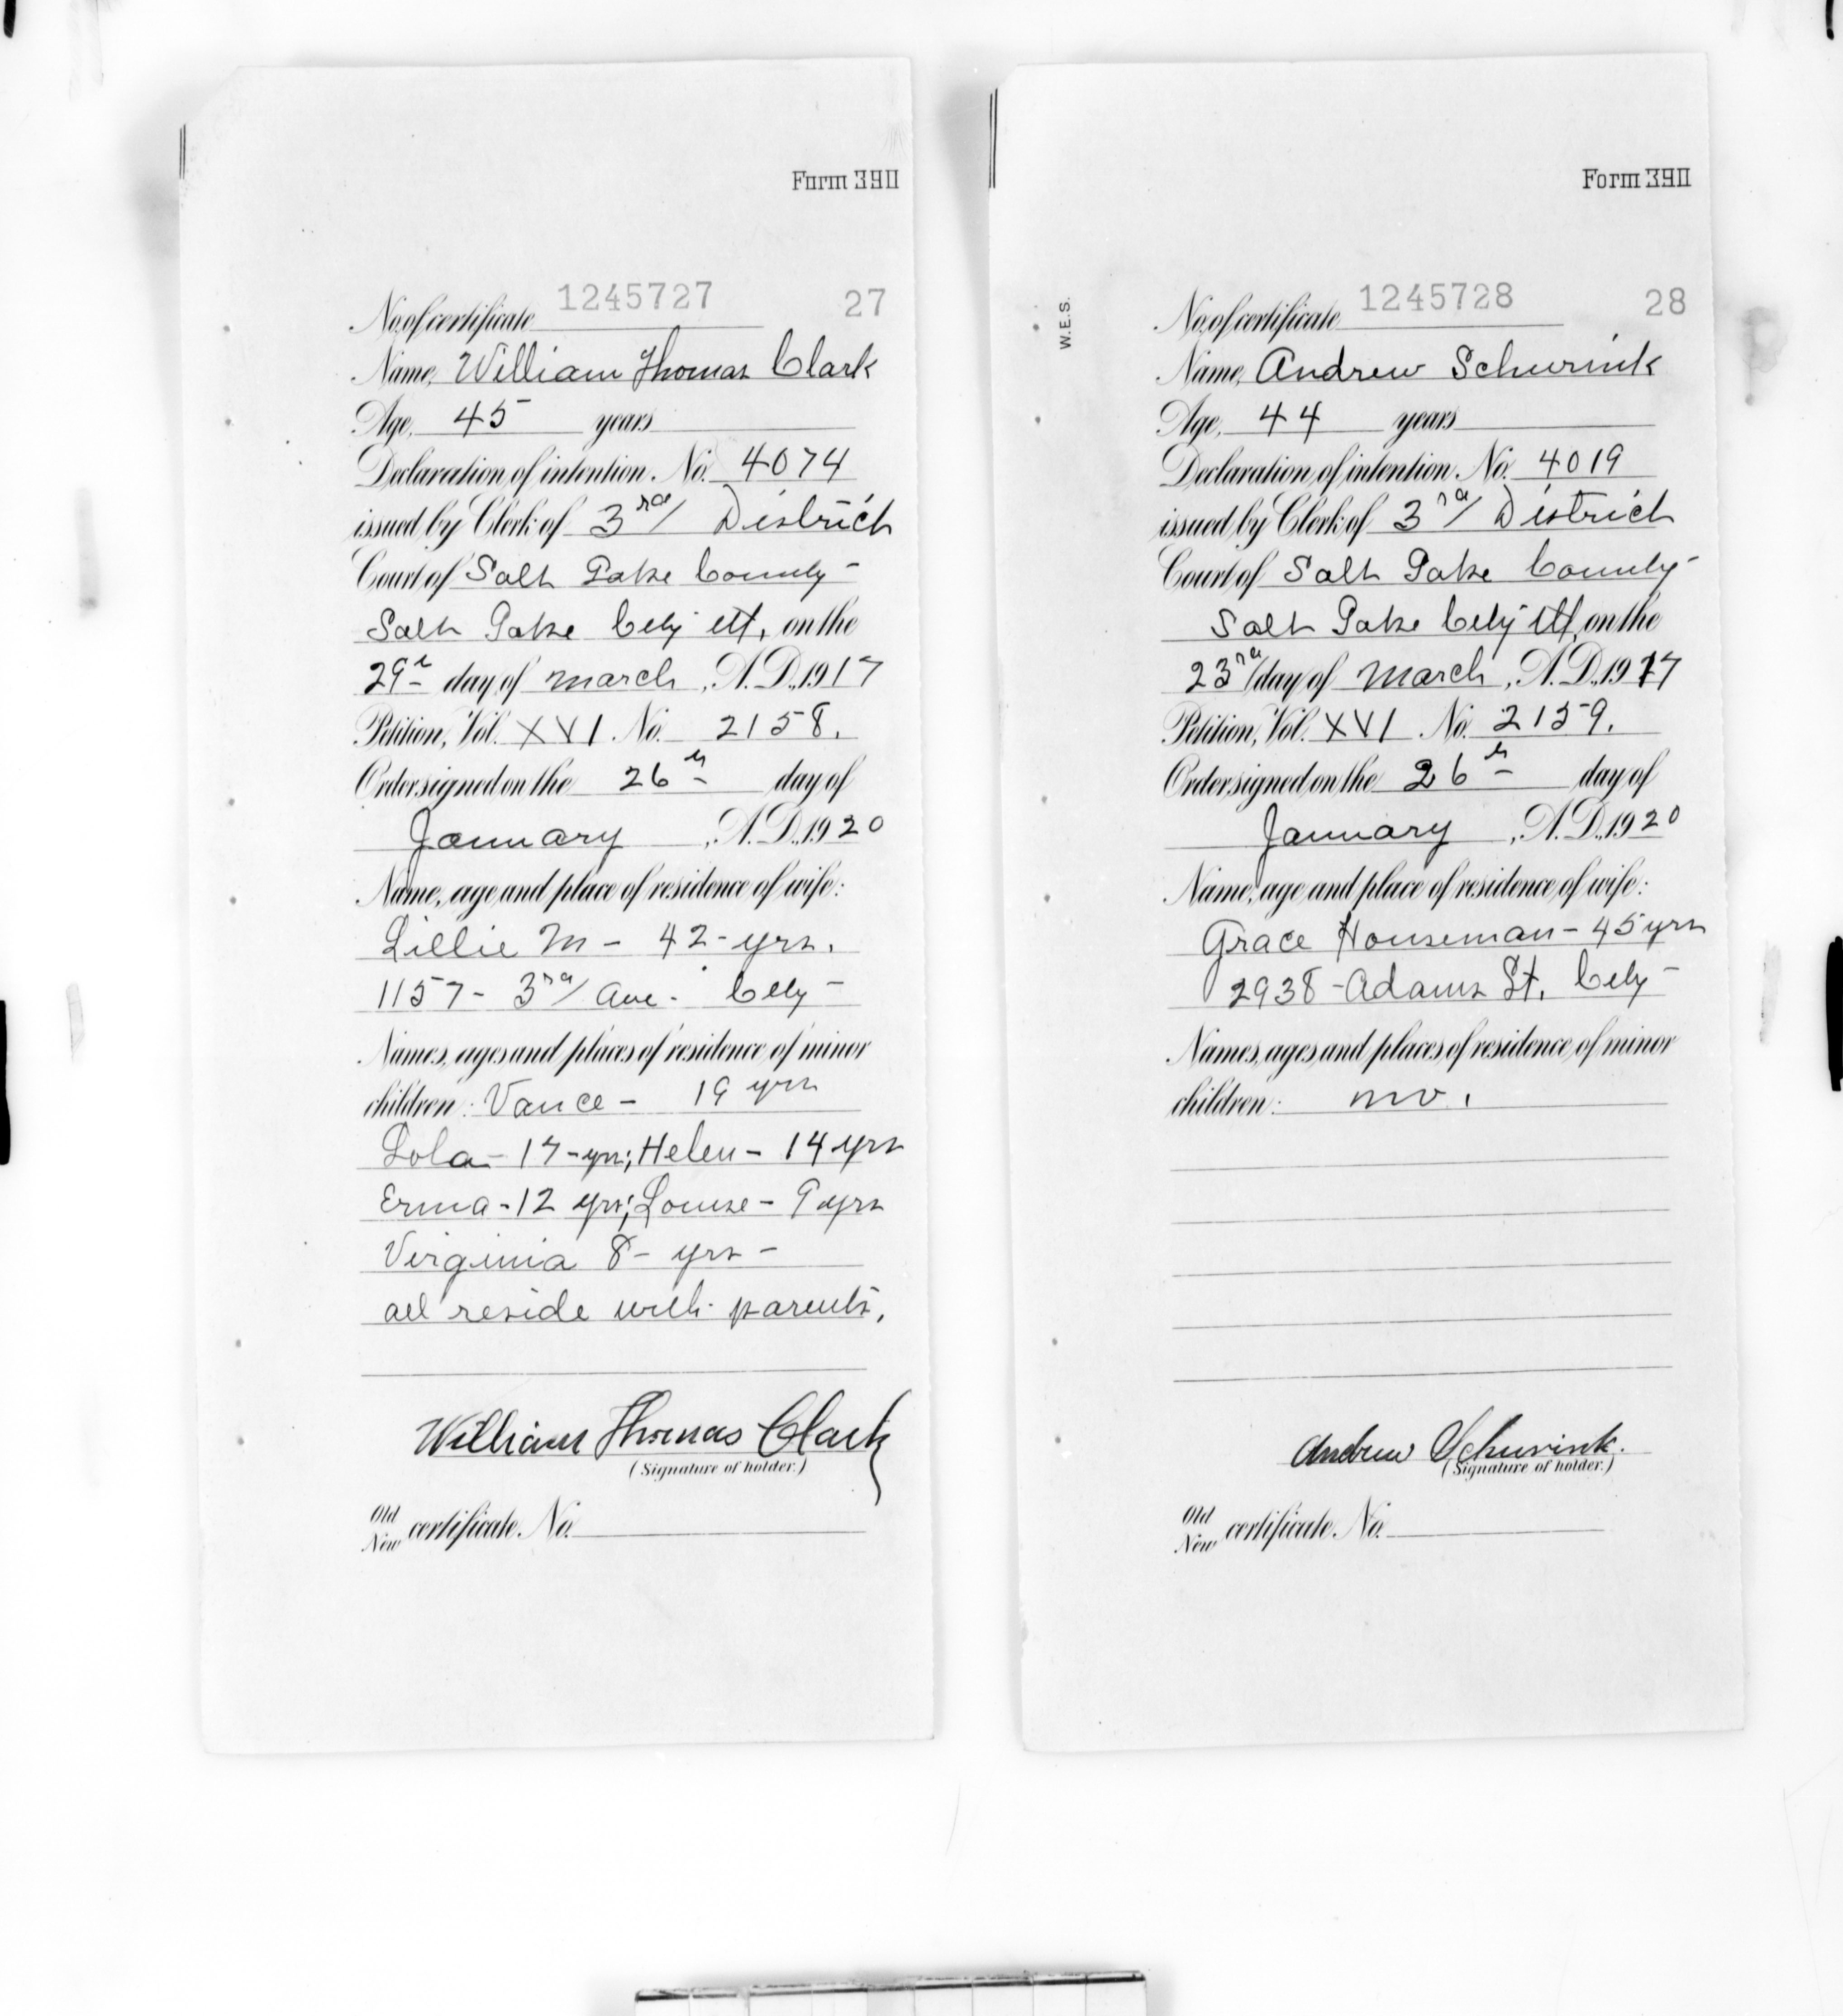 Form 390
No. of certificate 1245727 27
Name, William Thomas Clark
Age, 45 years
Declaration of intention, No. 4074
issued by Clerk of 3rd District
Court of Salt Lake County
Salt Lake City Ut, on the
29th day of March, A.D., 1917
Petition, Vol. XVI No. 2158.
Order signed on the 26th day of
January, A.D., 1920
Name, age and place of residence of wife:
Lillie M - 42 - yrs.
1157 - 3rd Ave. City -
Names, ages and places of residence of minor
children: Vance - 19 yrs
Lola - 17 - yrs; Helen - 14 yrs
Erma - 12 yrs; Louise - 9 yrs
Virginia 8 - yrs -
all reside with parents.
William Thomas Clark
(Signature of holder.)
Old
New certificate No.
Form 390
W.E.S.
No. of certificate 1245728 28
Name, Andrew Schurink
Age, 44 years
Declaration of intention, No. 4019
issued by Clerk of 3rd District
Court of Salt Lake County
Salt Lake City Ut, on the
23rd day of March, A.D., 1917
Petition, Vol. XVI No. 2159.
Order signed on the 26th day of
January, A.D., 1920
Name, age and place of residence of wife:
Grace Houseman - 45 yrs
2938 - Adams St. City -
Names, ages and places of residence of minor
children: no.
Andrew Schurink.
(Signature of holder.)
Old
New certificate No.